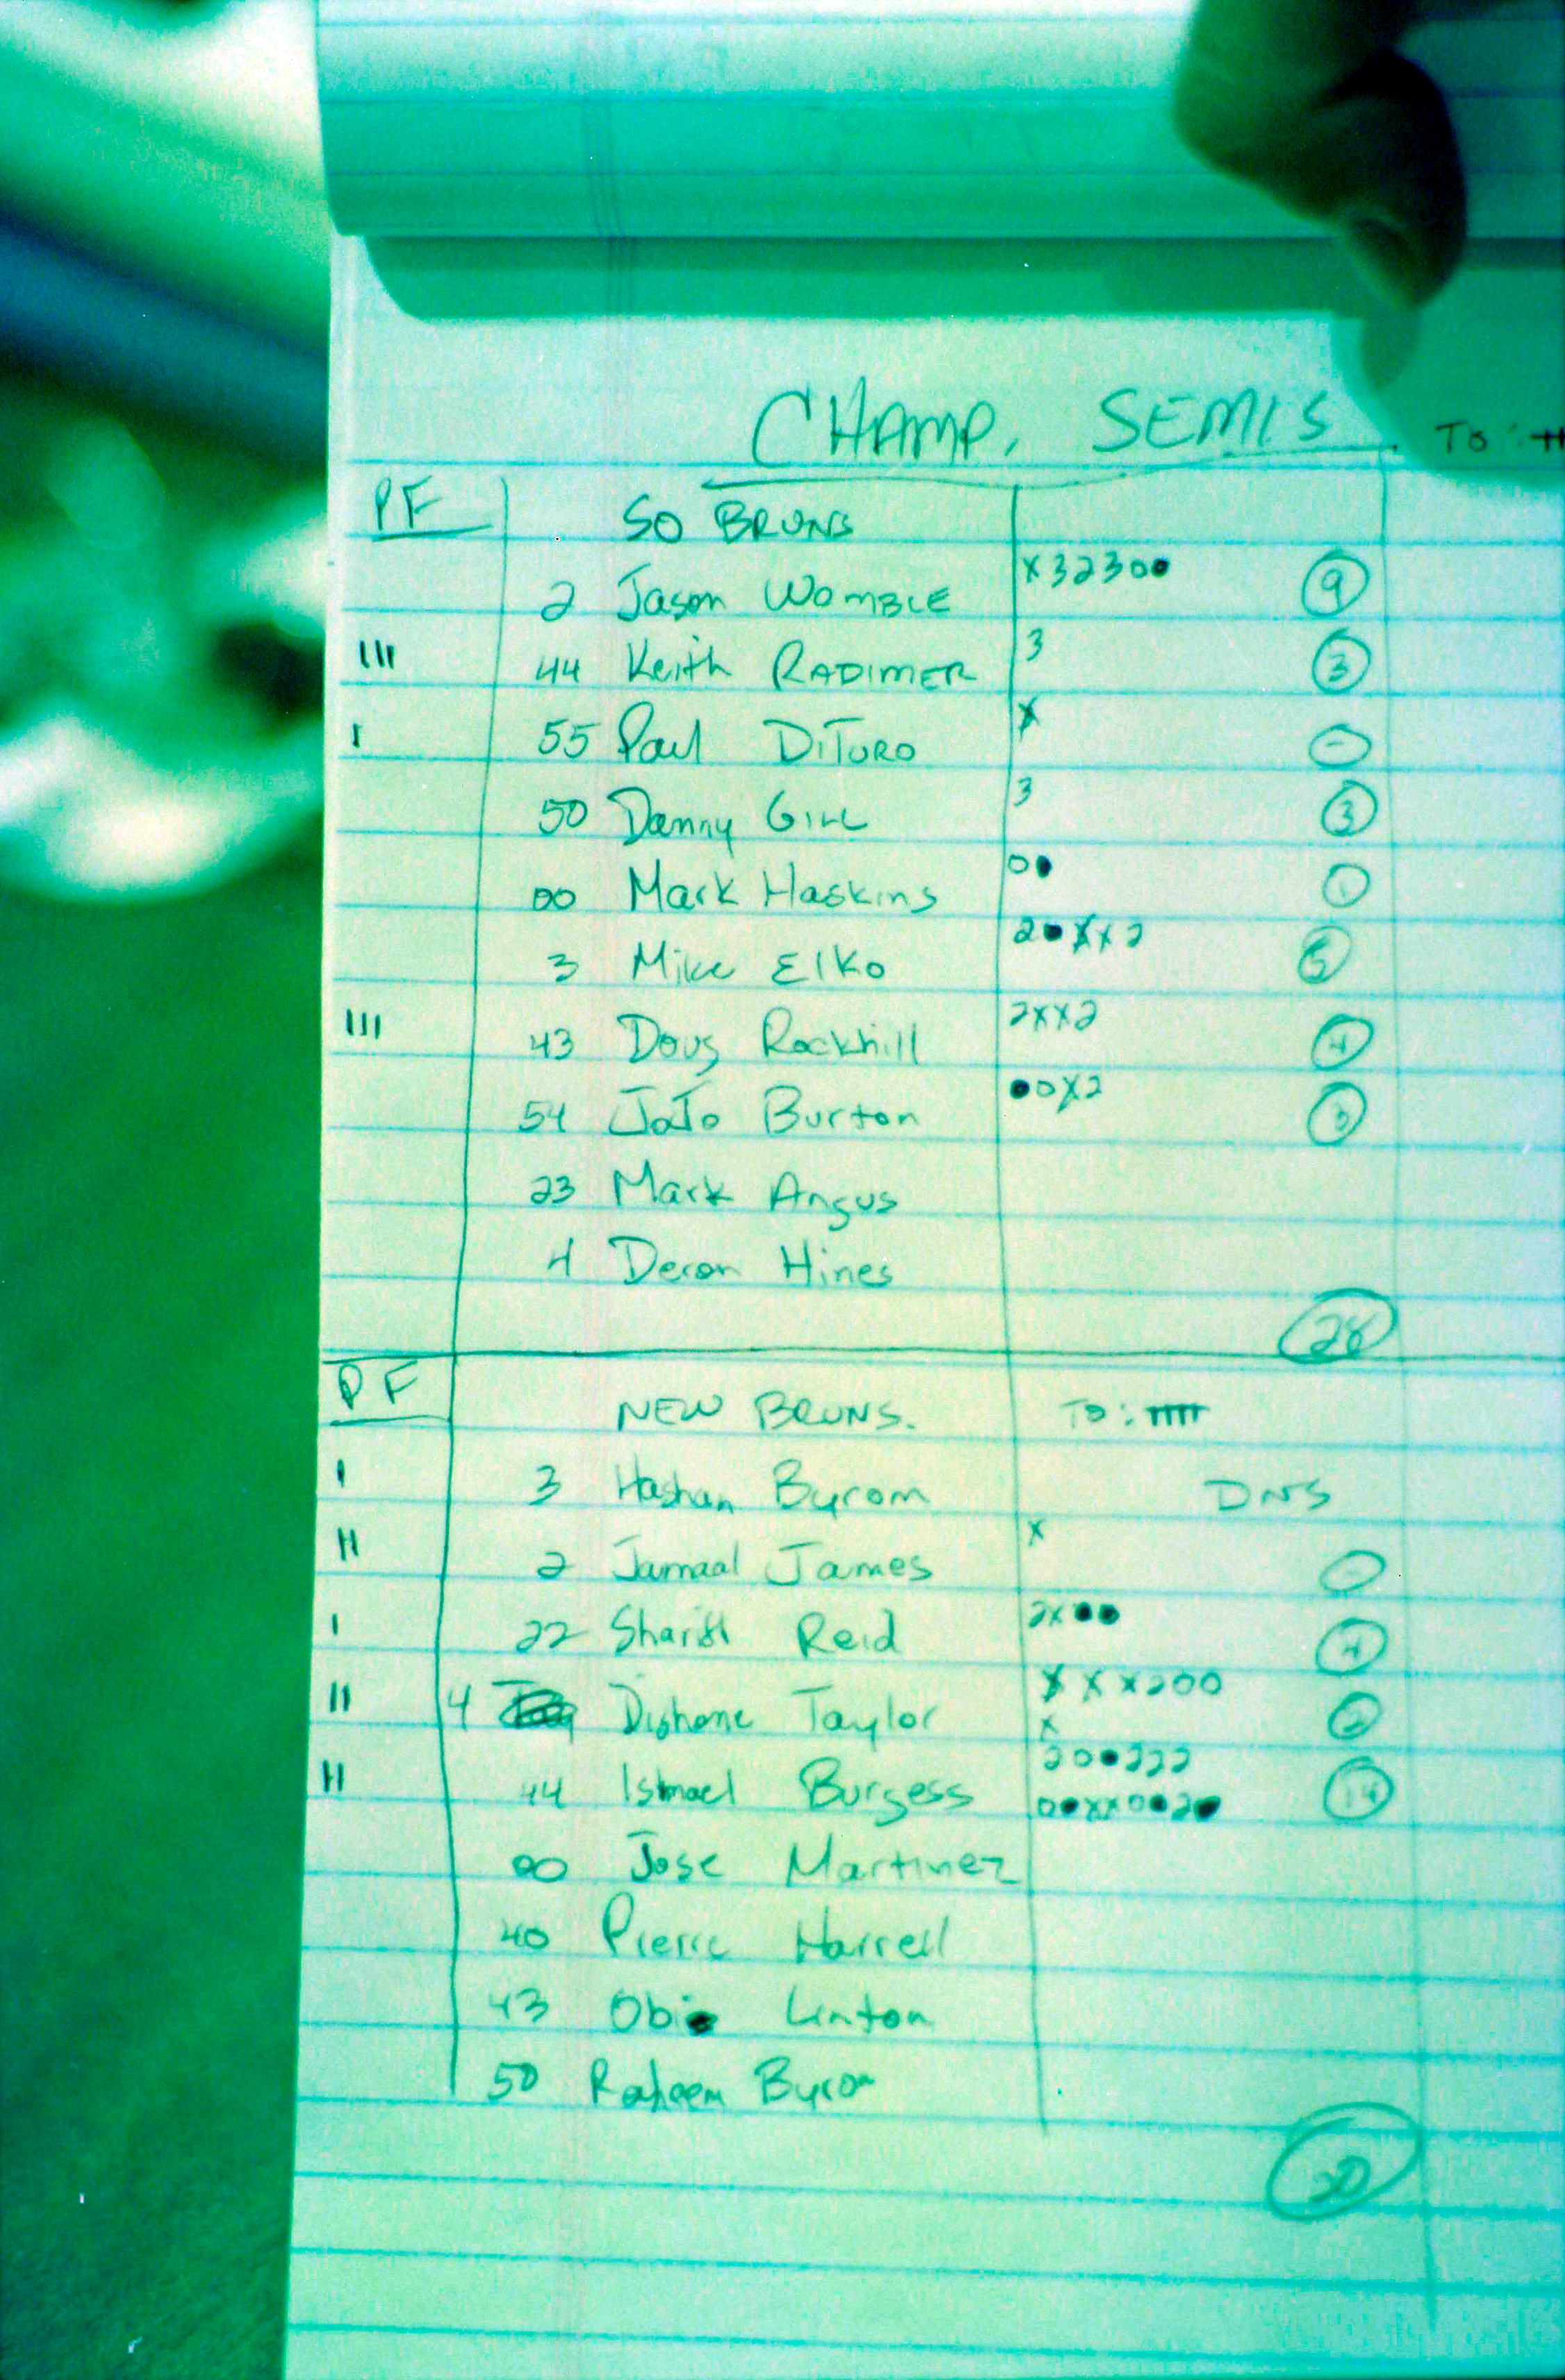 CHAMP. SEMIS
TO:
PF SO BRUNS
2 Jason WOMBLE X 3 2 3 0 ● 9
III 44 Keith RADIMER 3 3
I 55 Paul DiTURO X -
50 Danny GILL 3 3
00 Mark Haskins 0 ● 1
3 Mike Elko 2 ● X X 2 5
III 43 Doug Rockhill 2 X X 2 4
54 JoJo Burton ● 0 X 2 3
23 Mark Angus
4 Deron Hines
28
PF NEW BRUNS. TO: IIIII
I 3 Hashan Byrom DNS
II 2 Jamaal James X -
I 22 Reid 2 X ● ● 4
II 4 Dishone Taylor X X X 2 0 0 2
X
2 0 ● 2 2 2
II 44 Ismael Burgess 0 ● X X 0 ● 2 ● 14
00 Jose Martinez
40 Pierre Harrell
43 Obie Linton
50 Raheem Byrom
20